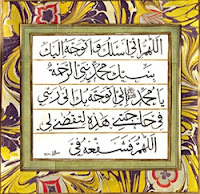 اللهم اني اسئلك واتوجه اليك
بنبيك محمد نبي الرحمة
يا محمد اني اتوجه بك الى ربي
في حاجتي هذه لتقضى لي
اللهم فشفعه في